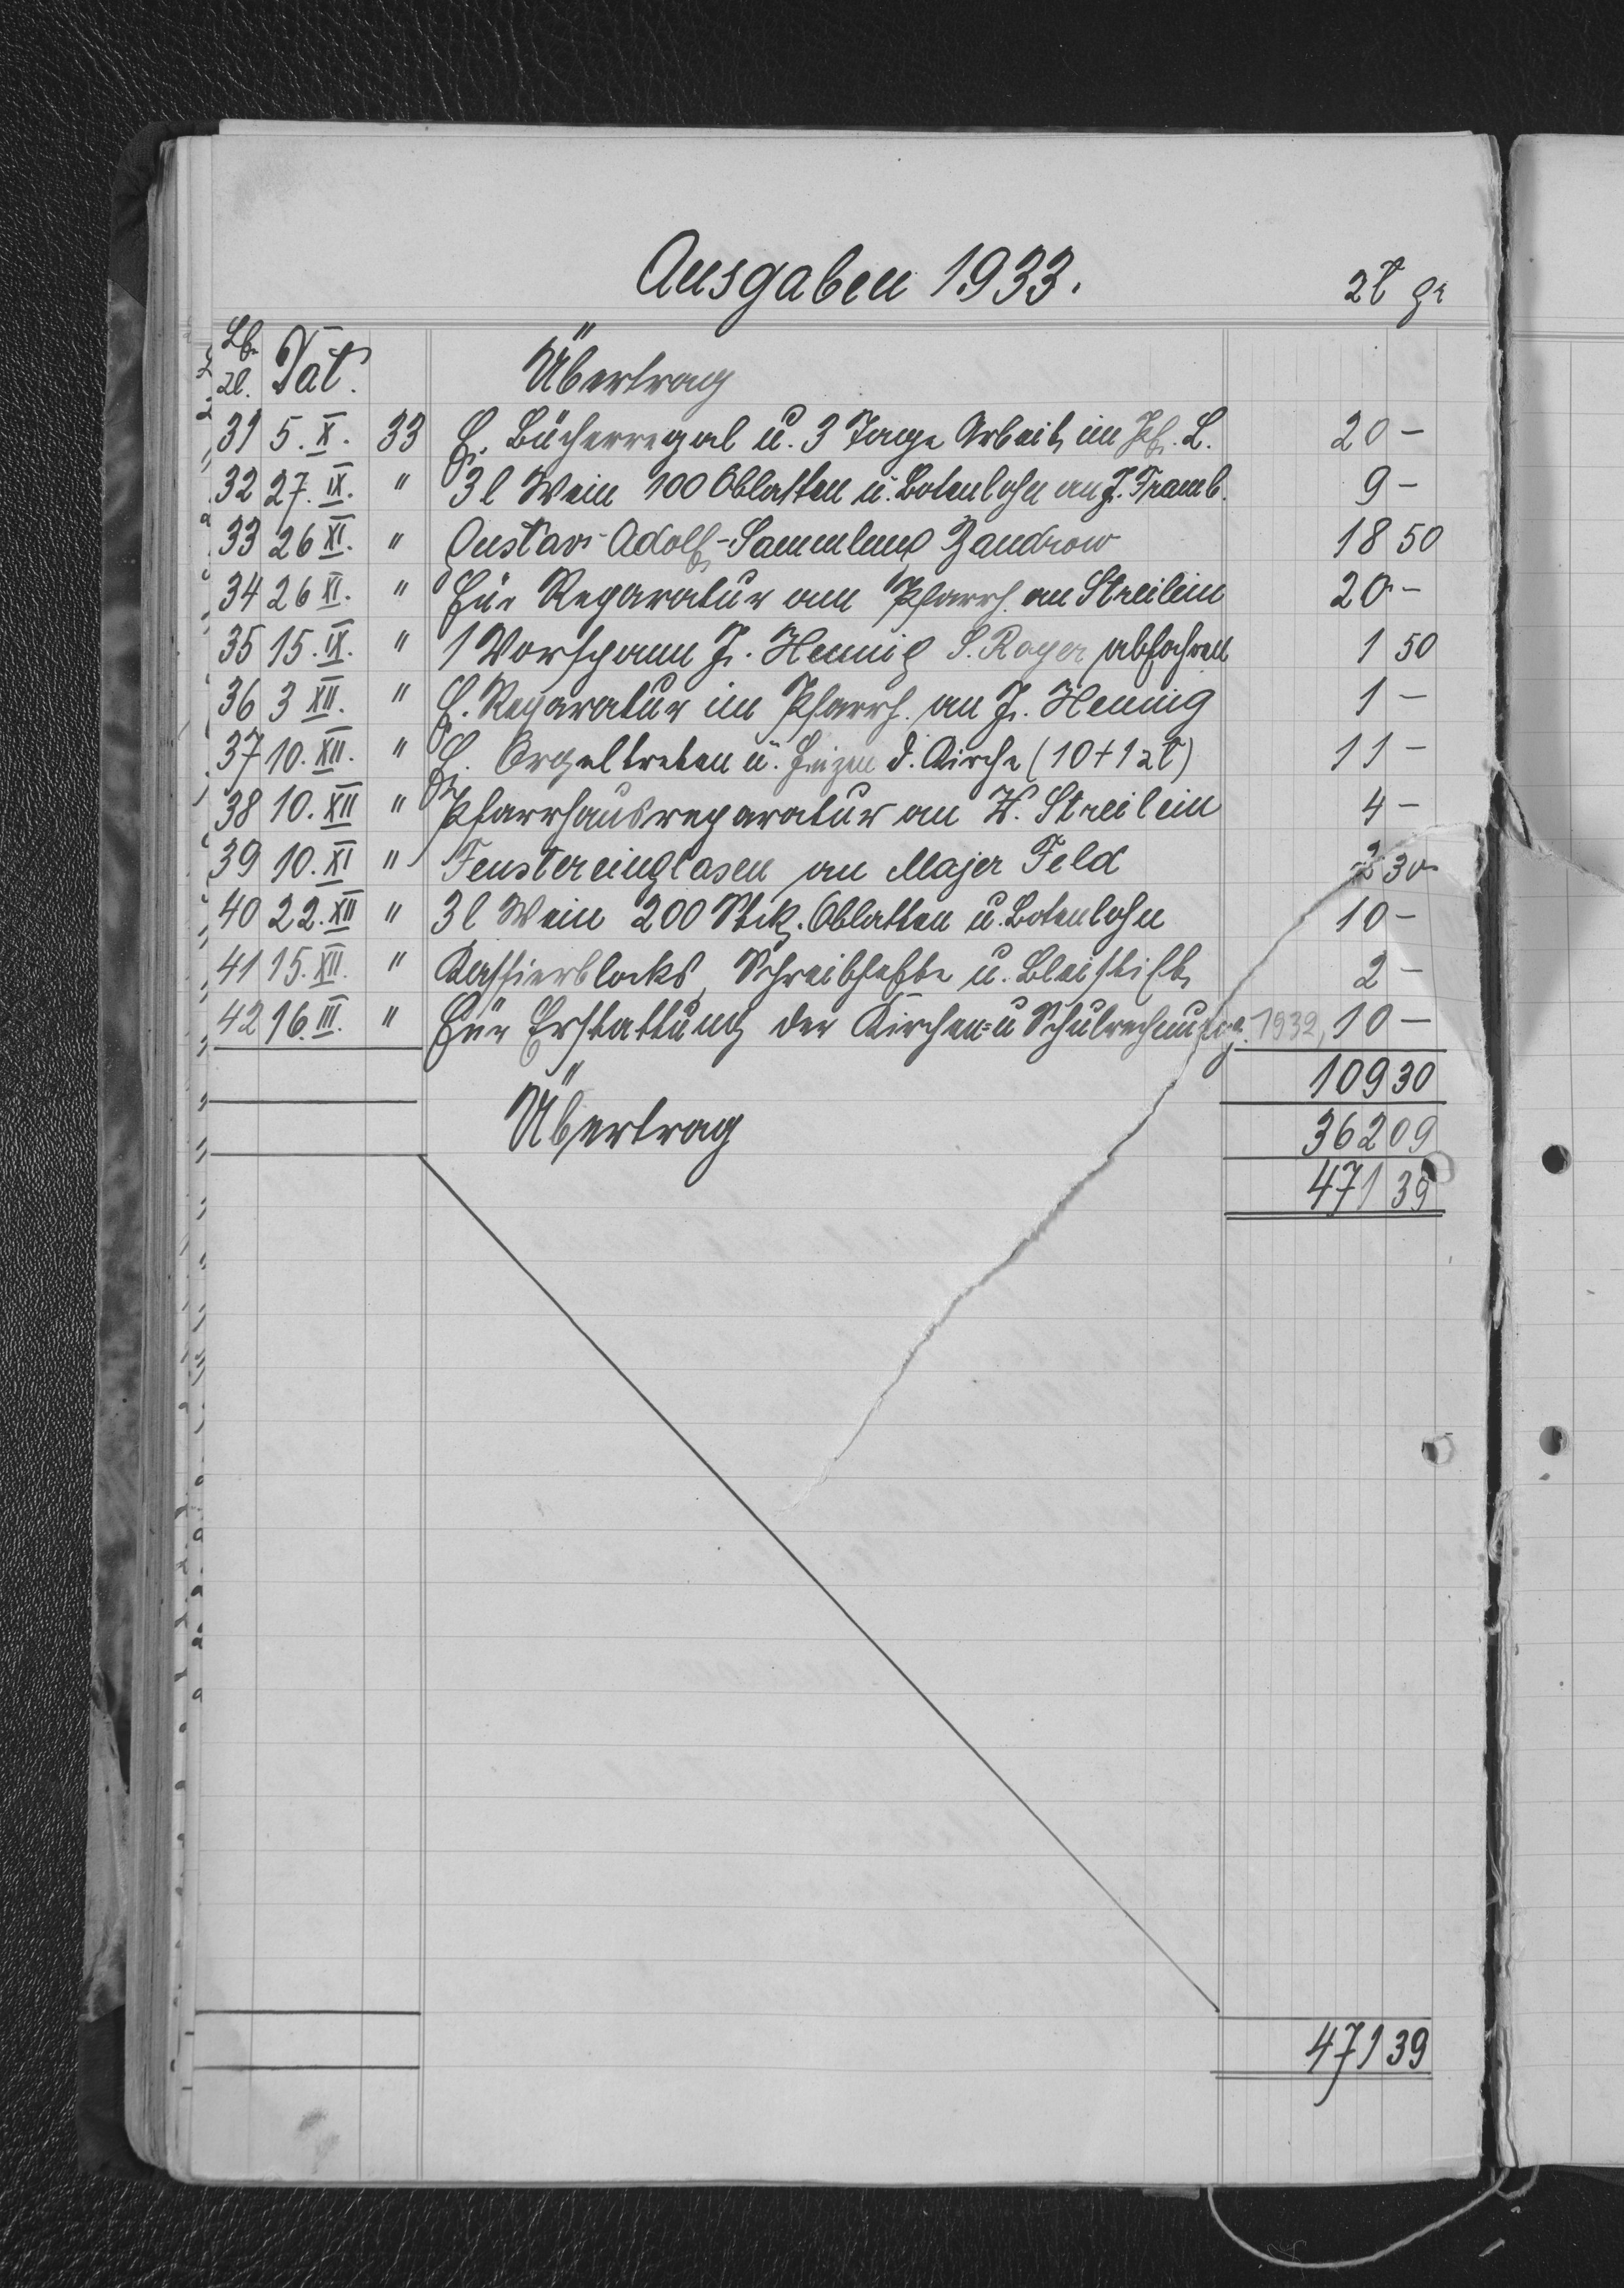 Ausgaben 1933. zł gr
Lb. Zl. Dat. Übertrag
31 5. X. 33 f. Bücherregal u. 3 Tage Arbeit im Pf. L. 20 –
32 27. IX. " 3 l Wein 100 Oblatten u. Botenlohn an J. Framb. 9 –
33 26 XI. " Gustav-Adolf-Sammlung Bandrow 18 50
34 26 XI. " Für Reparatur am Pfarrh. an Streilein 20 –
35 15. IX. " 1 Vorspann J. Hennig S. Royer abfahren 1 50
36 3 XII. " f. Reparatur im Pfarrh. an J. Hennig 1 –
37 10. XII. " f. Orgeltreten u. Heizen d. Kirche (10 + 1 zł) 11 –
38 10. XII " Pfarrhausreparatur an W. Streilein 4 –
39 10. XI " Fenstereinglasen an Majer Feld 2 30
40 22. XII " 3 l Wein 200 Stck. Oblatten u. Botenlohn 10 –
41 15. XII. " Kassierblocks, Schreibhefte u. Bleistift 2 –
42 16. III. " Für Erstattung der Kirchen= u Schulrechnung 1932, 10 –
109 30
Übertrag 362 09
471 39
471 39